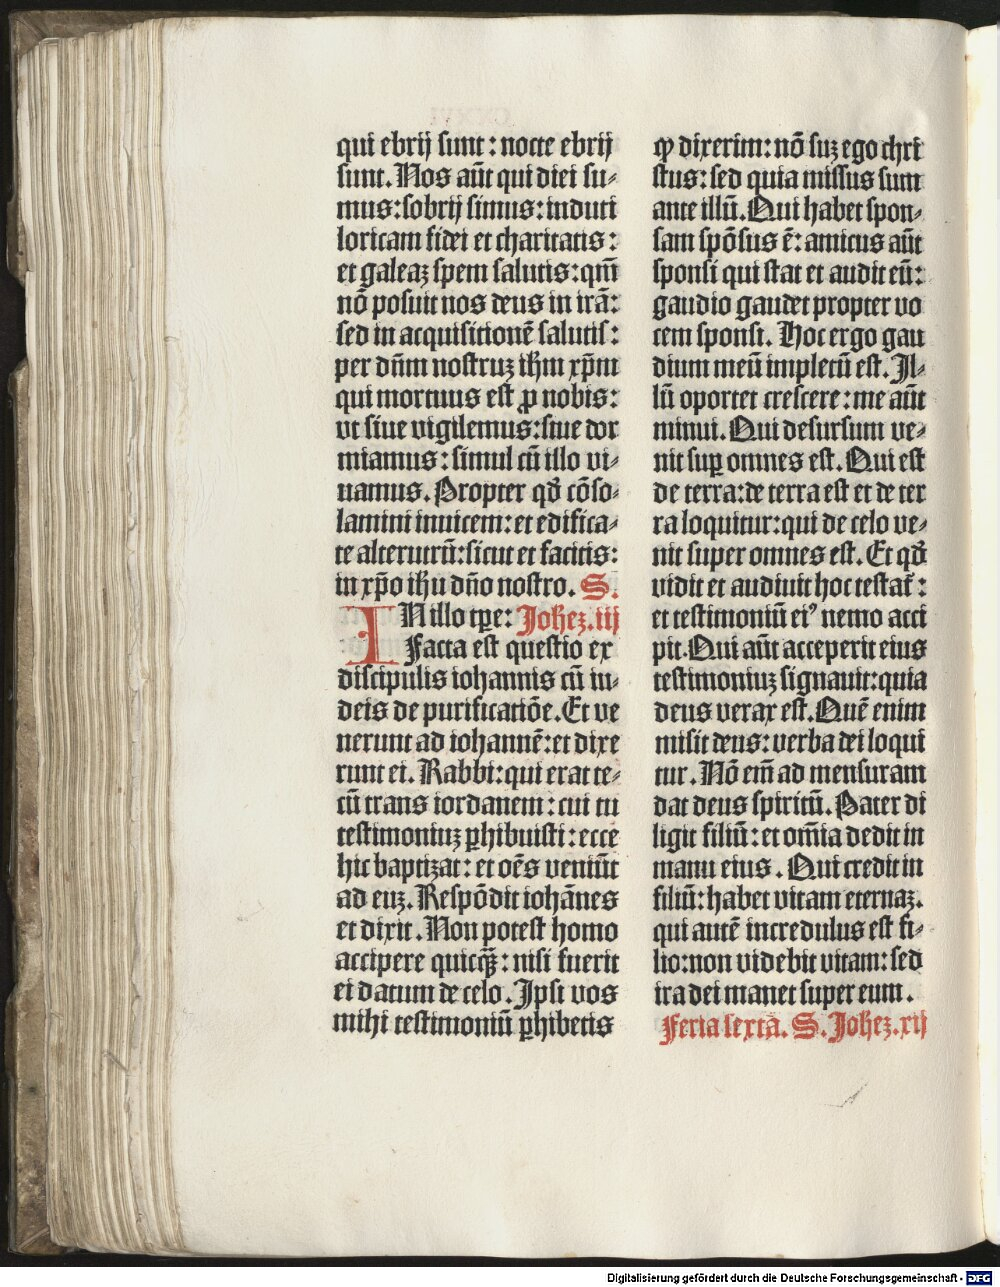 qui ebrij sunt : nocte ebrij
sunt. Nos aūt qui diei su⸗
mus : sobrij simus : induti
loricam fidei et charitatis :
et galeaȝ spem salutis : qm̄
nō posuit nos deus in irā :
sed in acquisitionē salutis :
per dn̄m nostruȝ ihm̄ xp̄m
qui mortuus est ꝓ nobis :
vt siue vigilemus : siue dor
miamus : simul cū illo vi⸗
uamus. Propter qd̄ cōso⸗
lamini inuicem : et edifica⸗
te alterutrū : sicut et facitis :
in xp̄o ihu dn̄o nostro. S.
IN illo tꝑe : Joheȝ. iij
Facta est questio ex
discipulis iohannis cū iu⸗
deis de purificatiōe. Et ve
nerunt ad iohannē : et dixe
runt ei. Rabbi : qui erat te⸗
cū trans iordanem : cui tu
testimoniuȝ ꝑhibuisti : ecce
hic baptizat : et oēs veniūt
ad euȝ. Respōdit iohānes
et dixit. Non potest homo
accipere quicqȝ̄ : nisi fuerit
ei datum de celo. Ipsi vos
mihi testimoniū ꝑhibetis
ꝙ dixerim : nō suȝ ego chri
stus : sed quia missus sum
ante illū. Qui habet spon⸗
sam spōsus ē : amicus aūt
sponsi qui stat et audit eū :
gaudio gaudet propter vo
cem sponsi. Hoc ergo gau
dium meū impletū est. Il⸗
lū oportet crescere : me aūt
minui. Qui desursum ve⸗
nit suꝑ omnes est. Qui est
de terra : de terra est et de ter
ra loquitur : qui de celo ve⸗
nit super omnes est. Et qd̄
vidit et audiuit hoc testat̄ :
et testimoniū eiꝰ nemo acci
pit. Qui aūt acceperit eius
testimoniuȝ signauit : quia
deus verax est. Quē enim
misit deus : verba dei loqui
tur. Nō em̄ ad mensuram
dat deus spiritū. Pater di
ligit filiū : et om̄ia dedit in
manu eius. Qui credit in
filiū : habet vitam eternaȝ.
qui autē incredulus est fi⸗
lio : non videbit vitam : sed
ira dei manet super eum.
Feria sexta. S. Joheȝ. xij
Digitalisierung gefördert durch die Deutsche Forschungsgemeinschaft - DFG